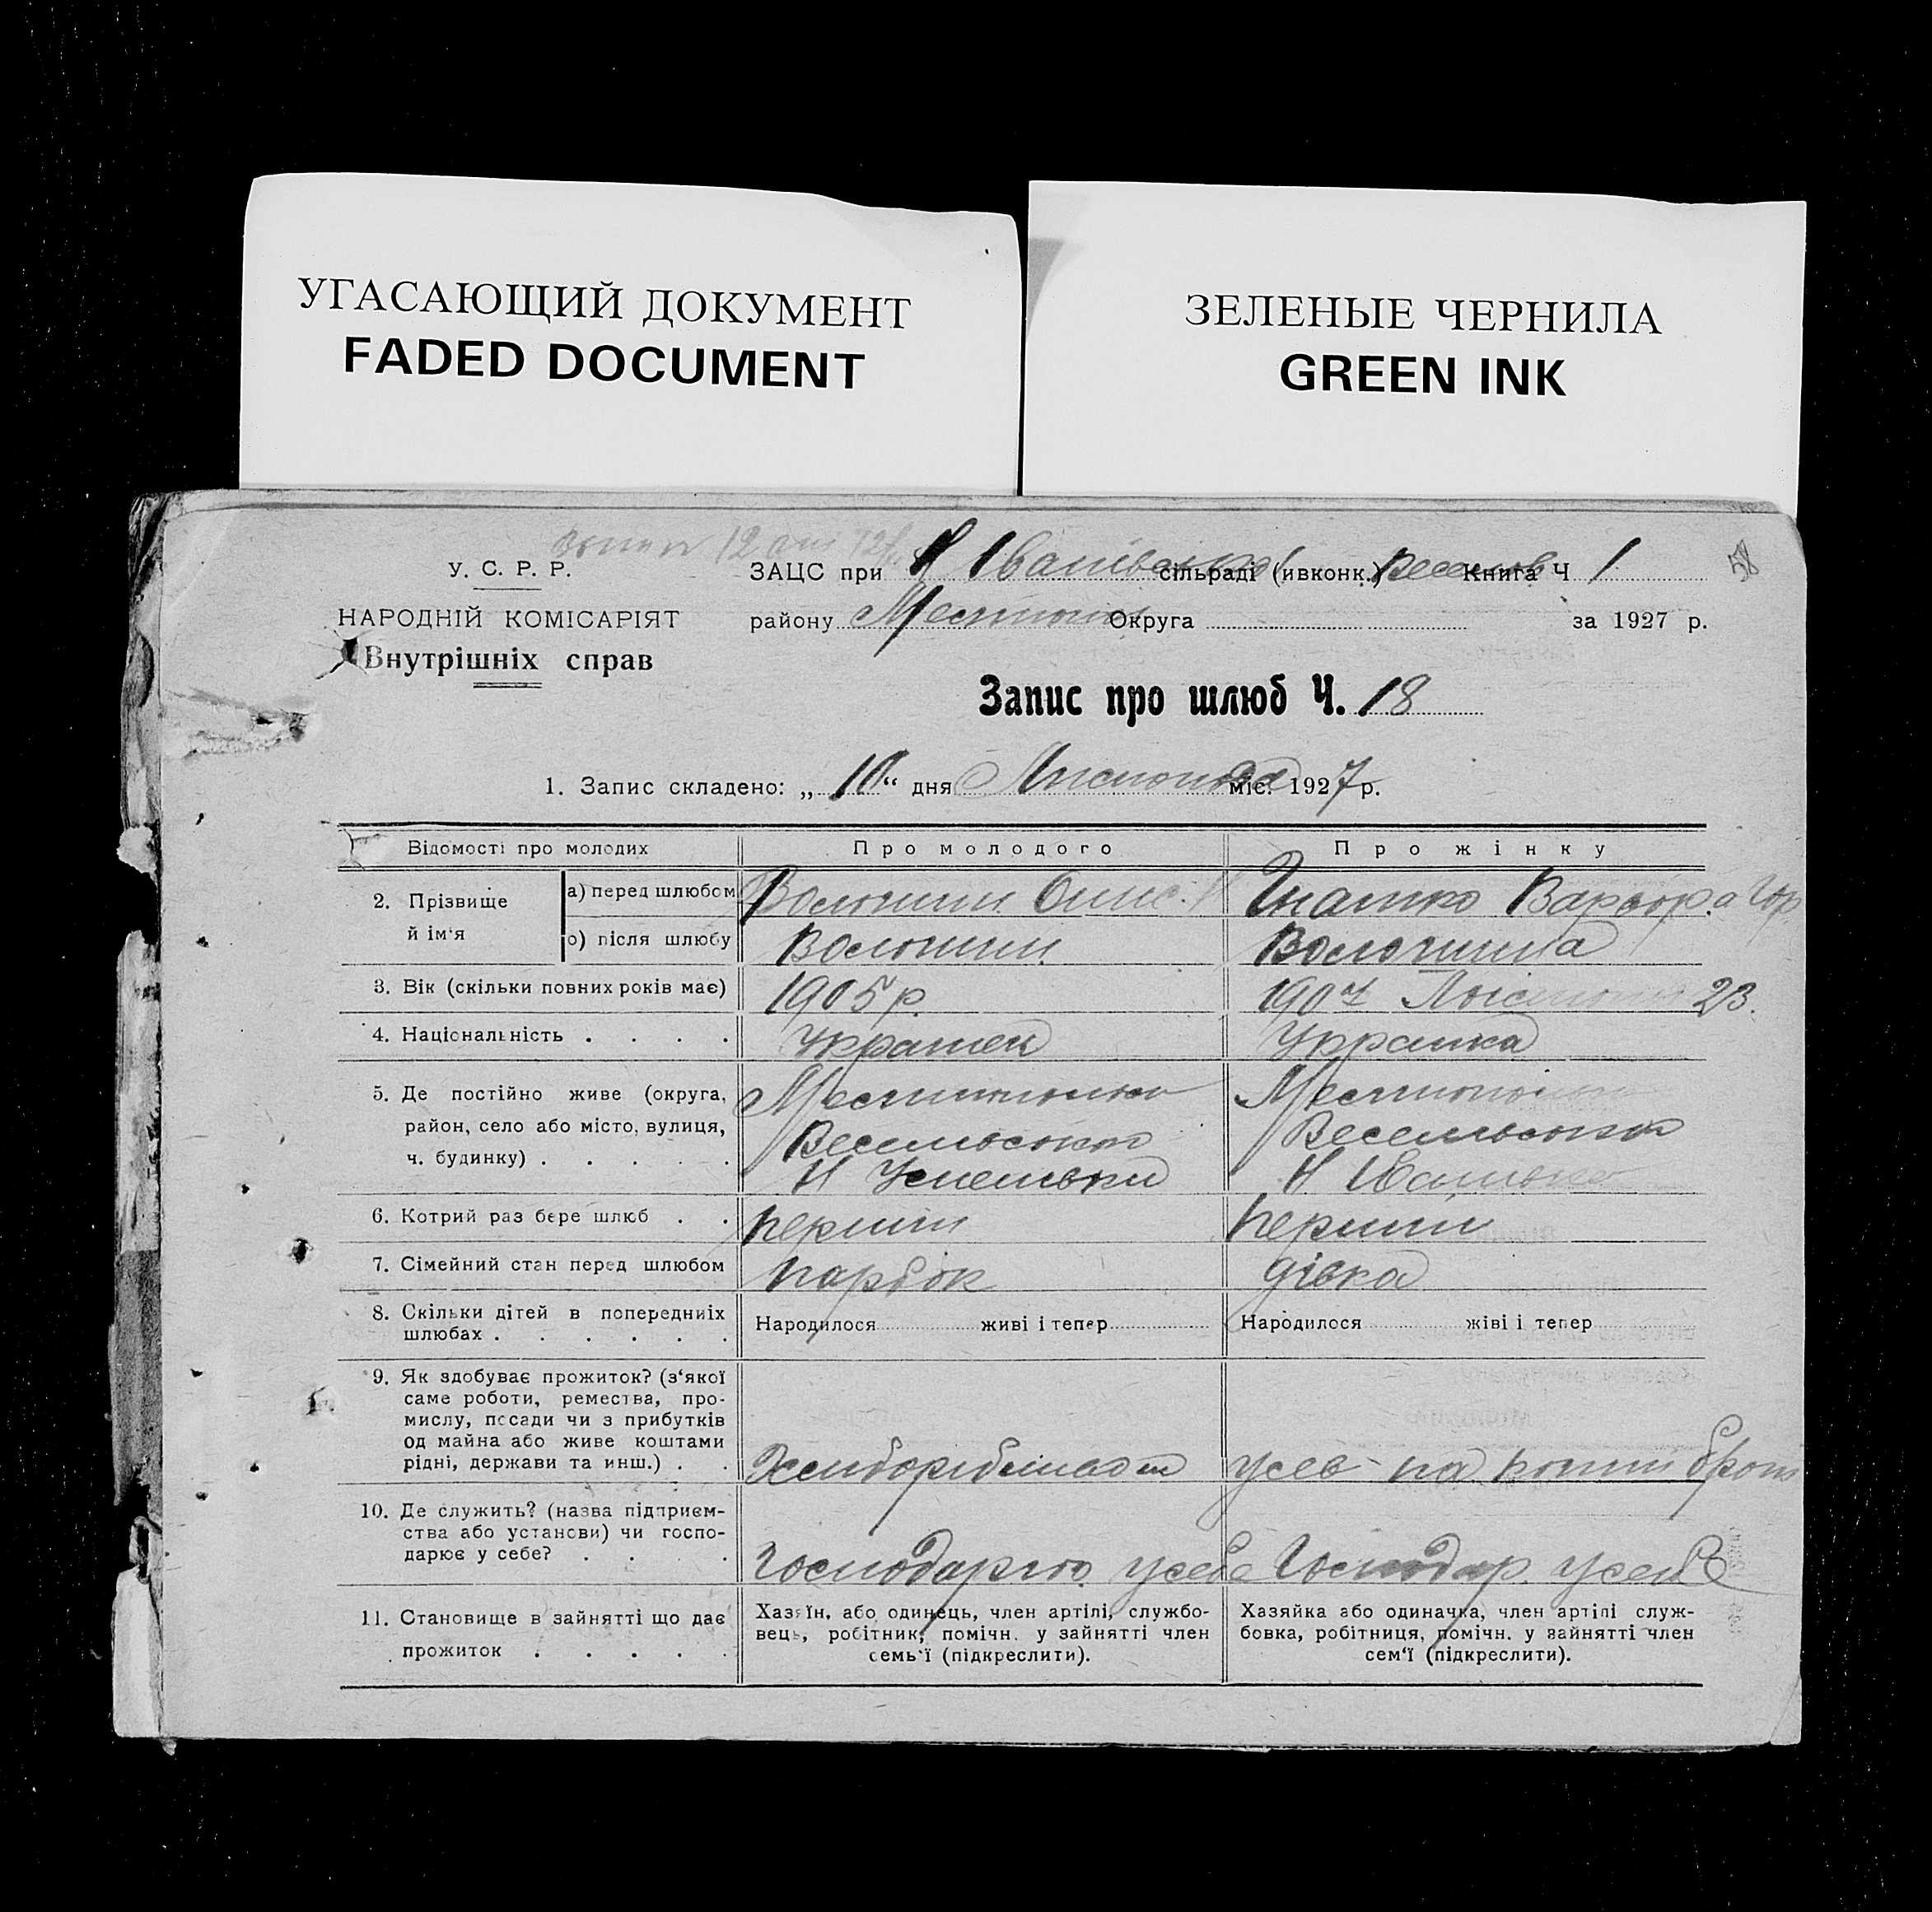 УГАСАЮЩИЙ ДОКУМЕНТ
FADED DOCUMENT
ЗЕЛЕНЫЕ ЧЕРНИЛА
GREEN INK
58
У. С. Р. Р.
НАРОДНІЙ КОМІСАРІЯТ
Внутрішніх справ
ЗАЦС при Н Іванівській сільраді (ивконк.) Весел Книга Ч 1
району Мелітоп Округа за 1927 р.
Запис про шлюб Ч. 18
1. Запис складено: „ 10 “ дня Листопада міс. 1927 р.
Відомості про молодих Про молодого Про жінку
2. Прізвище й ім‘я
а) перед шлюбом Волошин Гнатко Варвара
о) після шлюбу Волошин Волошина
3. Вік (скільки повних років має) 1905 р. 1907 Листопада 23.
4. Національність . . . . Українець Українка
5. Де постійно живе (округа, Мелітопольськ Мелітопольськ
район, село або місто, вулиця, Веселівський Веселівський
ч. будинку) . . . . . Н Успенівки Н Іванівка
6. Котрий раз бере шлюб . . перший перший
7. Сімейний стан перед шлюбом парубок дівка
8. Скільки дітей в попередниіх
шлюбах . . . . . . Народилося живі і тепер Народилося жіві і тепер
9. Як здобуває прожиток? (з‘якої
саме роботи, ремества, про-
мислу, посади чи з прибутків
од майна або живе коштами
рідні, держави та инш.) . . Хліборобством на кошти
10. Де служить? (назва підприєм-
ства або установи) чи госпо-
дарює у себе? . . . . Господарює у себе Господар. у себе
11. Становище в зайнятті що дає
прожиток . . . . .
Хазяїн, або одинець, член артілі, службо-
вець, робітник, помічн. у зайнятті член
семь‘ї (підкреслити).
Хазяйка або одиначка, член артілі служ-
бовка, робітниця, помічн. у зайнятті член
сем‘ї (підкреслити).